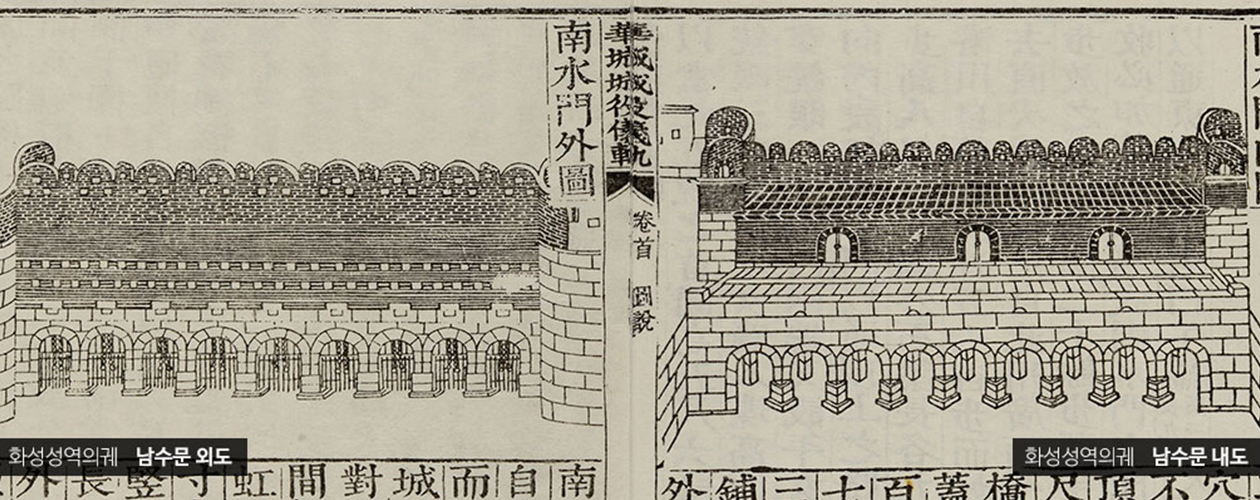 華城城役儀軌
卷首
圖說
南水門外圖
南自而城對間虹寸竪長外
穴不頂尺橋蓋百十三鋪外
화성성역의궤 남수문 외도
화성성역의궤 남수문 내도